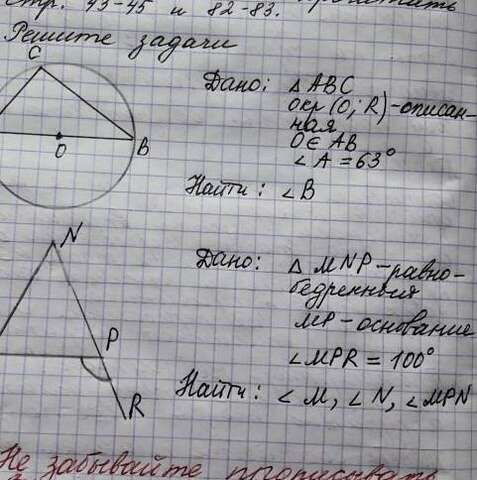 стр. 43-45 и 82-83.
Решите задачи
C
O
B
Дано: △ABC
окр(O; R)-описан-
ная
O∈AB
∠A=63°
Найти: ∠B
N
P
R
Дано: △MNP-равно-
бедренный
MP-основание
∠MPR = 100°
Найти: ∠M, ∠N, ∠MPN
Не забывайте прописывать